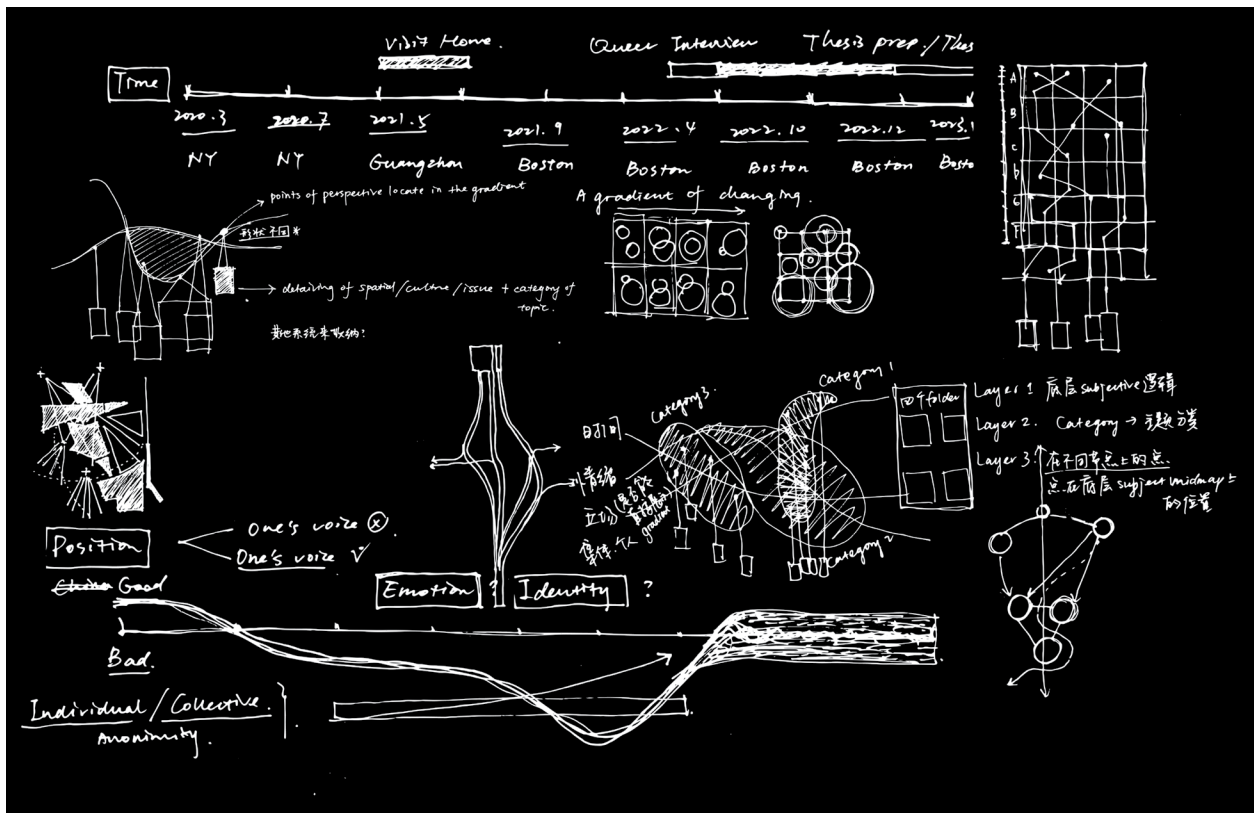 Visit Home.
Queer Interview
Thesis prep. / Thes
Time
2020.3
2020.7
2021.5
2021.9
2022.4
2022.10
2022.12
2023.1
NY
NY
Guangzhou
Boston
Boston
Boston
Boston
Bosto
A
B
C
D
E
F
points of perspective locate in the gradient
形状不同*
detailing of spatial/culture/issue + category of
topic.
其他系统来收纳?
A gradient of changing.
Category 1
Category 3
Category 2
时间
情绪
gradient
四个folder
Layer 1 底层subjective逻辑
Layer 2. Category → 主题分类
Layer 3. 在不同节点上的点
点在底层subject midmap上
的位置
Position
One's voice ⓧ
One's voice √
China Good
Bad.
Emotion ?
Identity ?
Individual / Collective.
Anonimity.